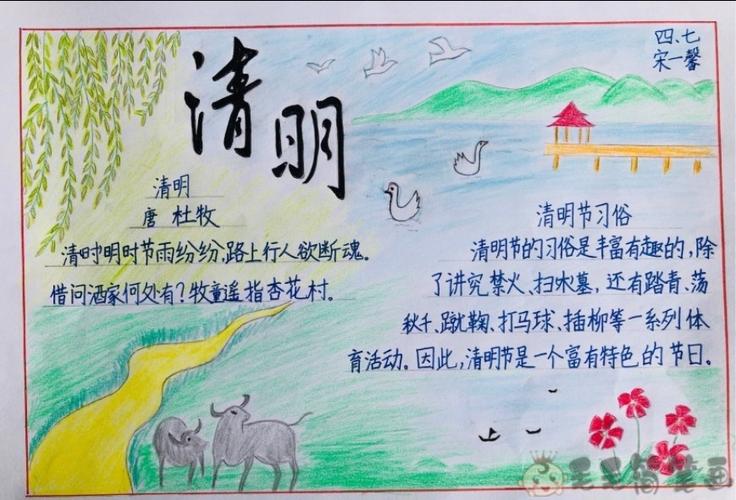 四、七
宋一馨
清明
清明
唐 杜牧
清时明时节雨纷纷,路上行人欲断魂。
借问酒家何处有?牧童遥指杏花村。
清明节习俗
清明节的习俗是丰富有趣的,除
了讲究禁火、扫墓,还有踏青、荡
秋千、蹴鞠、打马球、插柳等一系列体
育活动。因此,清明节是一个富有特色的节日。
毛毛简笔画